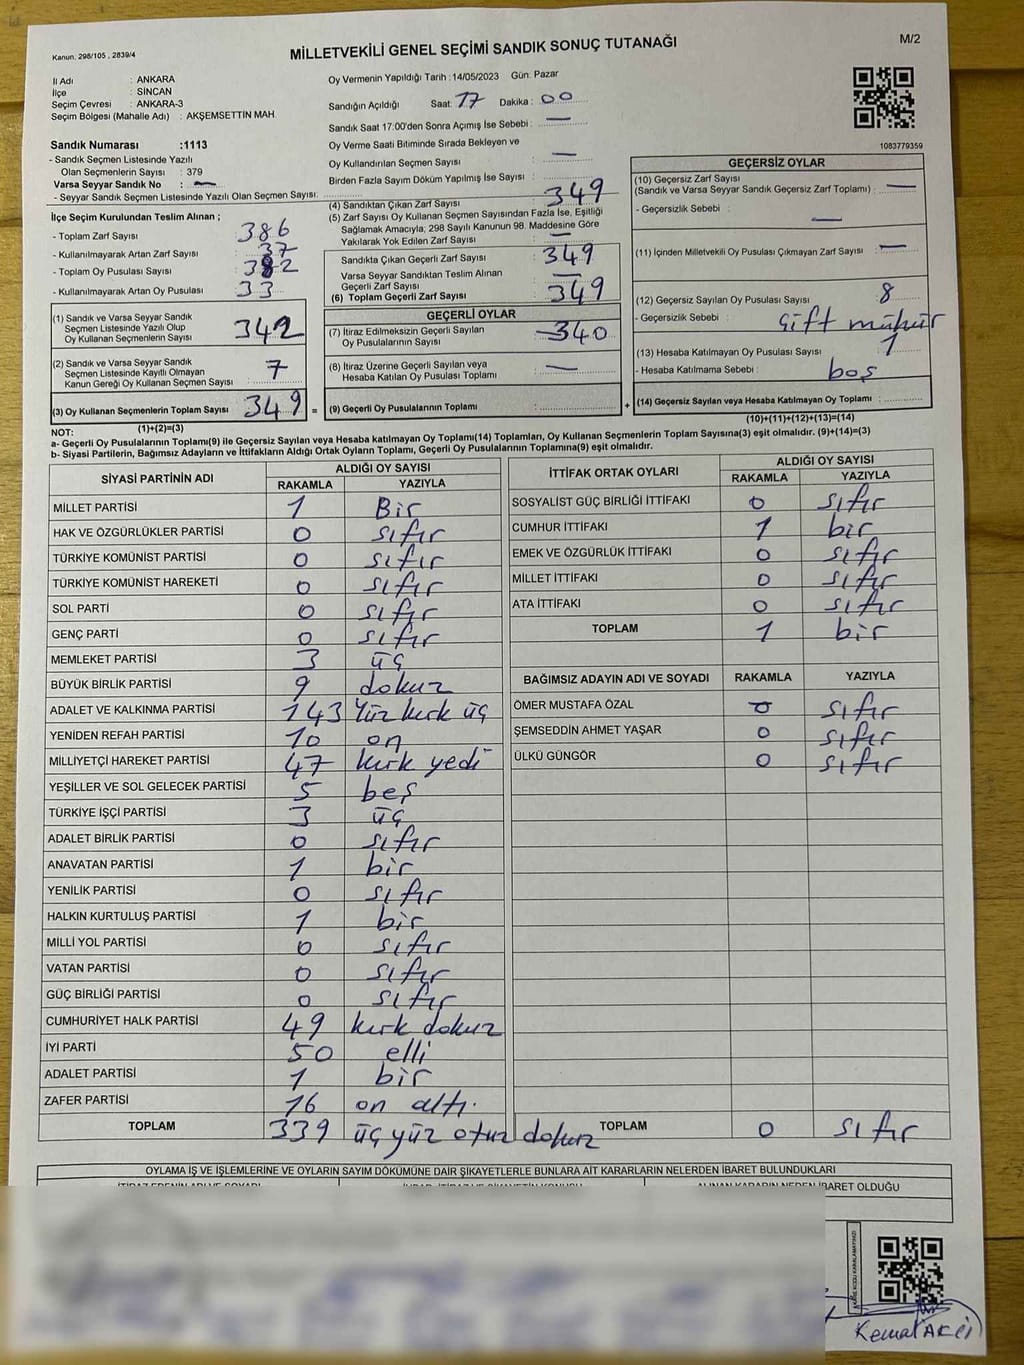 Kanun. 298/105 , 2839/4
MİLLETVEKİLİ GENEL SEÇİMİ SANDIK SONUÇ TUTANAĞI
M/2
İl Adı : ANKARA
İlçe : SİNCAN
Seçim Çevresi : ANKARA-3
Seçim Bölgesi (Mahalle Adı) : AKŞEMSETTİN MAH.
Oy Vermenin Yapıldığı Tarih :14/05/2023 Gün: Pazar
Sandığın Açıldığı Saat: 17 Dakika : 00
Sandık Saat 17:00'den Sonra Açımış İse Sebebi : —
Oy Verme Saati Bitiminde Sırada Bekleyen ve
Oy Kullandırılan Seçmen Sayısı : —
Birden Fazla Sayım Döküm Yapılmış İse Sayısı :
1083779359
Sandık Numarası :1113
- Sandık Seçmen Listesinde Yazılı
Olan Seçmenlerin Sayısı : 379
Varsa Seyyar Sandık No : —
- Seyyar Sandık Seçmen Listesinde Yazılı Olan Seçmen Sayısı:
İlçe Seçim Kurulundan Teslim Alınan ;
- Toplam Zarf Sayısı : 386
- Kullanılmayarak Artan Zarf Sayısı : 37
- Toplam Oy Pusulası Sayısı : 382
- Kullanılmayarak Artan Oy Pusulası : 33
(1) Sandık ve Varsa Seyyar Sandık
Seçmen Listesinde Yazılı Olup
Oy Kullanan Seçmenlerin Sayısı : 342
(2) Sandık ve Varsa Seyyar Sandık
Seçmen Listesinde Kayıtlı Olmayan
Kanun Gereği Oy Kullanan Seçmen Sayısı : 7
(3) Oy Kullanan Seçmenlerin Toplam Sayısı : 349
(1)+(2)=(3)
(4) Sandıktan Çıkan Zarf Sayısı : 349
(5) Zarf Sayısı Oy Kullanan Seçmen Sayısından Fazla İse, Eşitliği
Sağlamak Amacıyla; 298 Sayılı Kanunun 98. Maddesine Göre
Yakılarak Yok Edilen Zarf Sayısı : —
Sandıkta Çıkan Geçerli Zarf Sayısı : 349
Varsa Seyyar Sandıktan Teslim Alınan
Geçerli Zarf Sayısı : —
(6) Toplam Geçerli Zarf Sayısı : 349
GEÇERLİ OYLAR
(7) İtiraz Edilmeksizin Geçerli Sayılan
Oy Pusulalarının Sayısı : 340
(8) İtiraz Üzerine Geçerli Sayılan veya
Hesaba Katılan Oy Pusulası Toplamı : —
= (9) Geçerli Oy Pusulalarının Toplamı :
GEÇERSİZ OYLAR
(10) Geçersiz Zarf Sayısı
(Sandık ve Varsa Seyyar Sandık Geçersiz Zarf Toplamı) : —
- Geçersizlik Sebebi : —
(11) İçinden Milletvekili Oy Pusulası Çıkmayan Zarf Sayısı : —
(12) Geçersiz Sayılan Oy Pusulası Sayısı : 8
- Geçersizlik Sebebi : çift mühür
(13) Hesaba Katılmayan Oy Pusulası Sayısı : 1
- Hesaba Katılmama Sebebi : boş
+ (14) Geçersiz Sayılan veya Hesaba Katılmayan Oy Toplamı :
(10)+(11)+(12)+(13)=(14)
NOT:
a- Geçerli Oy Pusulalarının Toplamı(9) ile Geçersiz Sayılan veya Hesaba katılmayan Oy Toplamı(14) Toplamları, Oy Kullanan Seçmenlerin Toplam Sayısına(3) eşit olmalıdır. (9)+(14)=(3)
b- Siyasi Partilerin, Bağımsız Adayların ve İttifakların Aldığı Ortak Oyların Toplamı, Geçerli Oy Pusulalarının Toplamına(9) eşit olmalıdır.
SİYASİ PARTİNİN ADI ALDIĞI OY SAYISI
RAKAMLA YAZIYLA
MİLLET PARTİSİ 1 Bir
HAK VE ÖZGÜRLÜKLER PARTİSİ 0 sıfır
TÜRKİYE KOMÜNİST PARTİSİ 0 sıfır
TÜRKİYE KOMÜNİST HAREKETİ 0 sıfır
SOL PARTİ 0 sıfır
GENÇ PARTİ 0 sıfır
MEMLEKET PARTİSİ 3 üç
BÜYÜK BİRLİK PARTİSİ 9 dokuz
ADALET VE KALKINMA PARTİSİ 143 Yüz kırk üç
YENİDEN REFAH PARTİSİ 10 on
MİLLİYETÇİ HAREKET PARTİSİ 47 kırk yedi
YEŞİLLER VE SOL GELECEK PARTİSİ 5 beş
TÜRKİYE İŞÇİ PARTİSİ 3 üç
ADALET BİRLİK PARTİSİ 0 sıfır
ANAVATAN PARTİSİ 1 bir
YENİLİK PARTİSİ 0 sıfır
HALKIN KURTULUŞ PARTİSİ 1 bir
MİLLİ YOL PARTİSİ 0 sıfır
VATAN PARTİSİ 0 sıfır
GÜÇ BİRLİĞİ PARTİSİ 0 sıfır
CUMHURİYET HALK PARTİSİ 49 kırk dokuz
İYİ PARTİ 50 elli
ADALET PARTİSİ 1 bir
ZAFER PARTİSİ 16 on altı.
TOPLAM 339 üç yüz otuz dokuz
İTTİFAK ORTAK OYLARI ALDIĞI OY SAYISI
RAKAMLA YAZIYLA
SOSYALİST GÜÇ BİRLİĞİ İTTİFAKI 0 sıfır
CUMHUR İTTİFAKI 1 bir
EMEK VE ÖZGÜRLÜK İTTİFAKI 0 sıfır
MİLLET İTTİFAKI 0 sıfır
ATA İTTİFAKI 0 sıfır
TOPLAM 1 bir
BAĞIMSIZ ADAYIN ADI VE SOYADI RAKAMLA YAZIYLA
ÖMER MUSTAFA ÖZAL 0 sıfır
ŞEMSEDDİN AHMET YAŞAR 0 sıfır
ÜLKÜ GÜNGÖR 0 sıfır
TOPLAM 0 sıfır
OYLAMA İŞ VE İŞLEMLERİNE VE OYLARIN SAYIM DÖKÜMÜNE DAİR ŞİKAYETLERLE BUNLARA AİT KARARLARIN NELERDEN İBARET BULUNDUKLARI
İTİRAZ EDENİN ADI VE SOYADI ALINAN KARARIN NEDEN İBARET OLDUĞU
Kemal